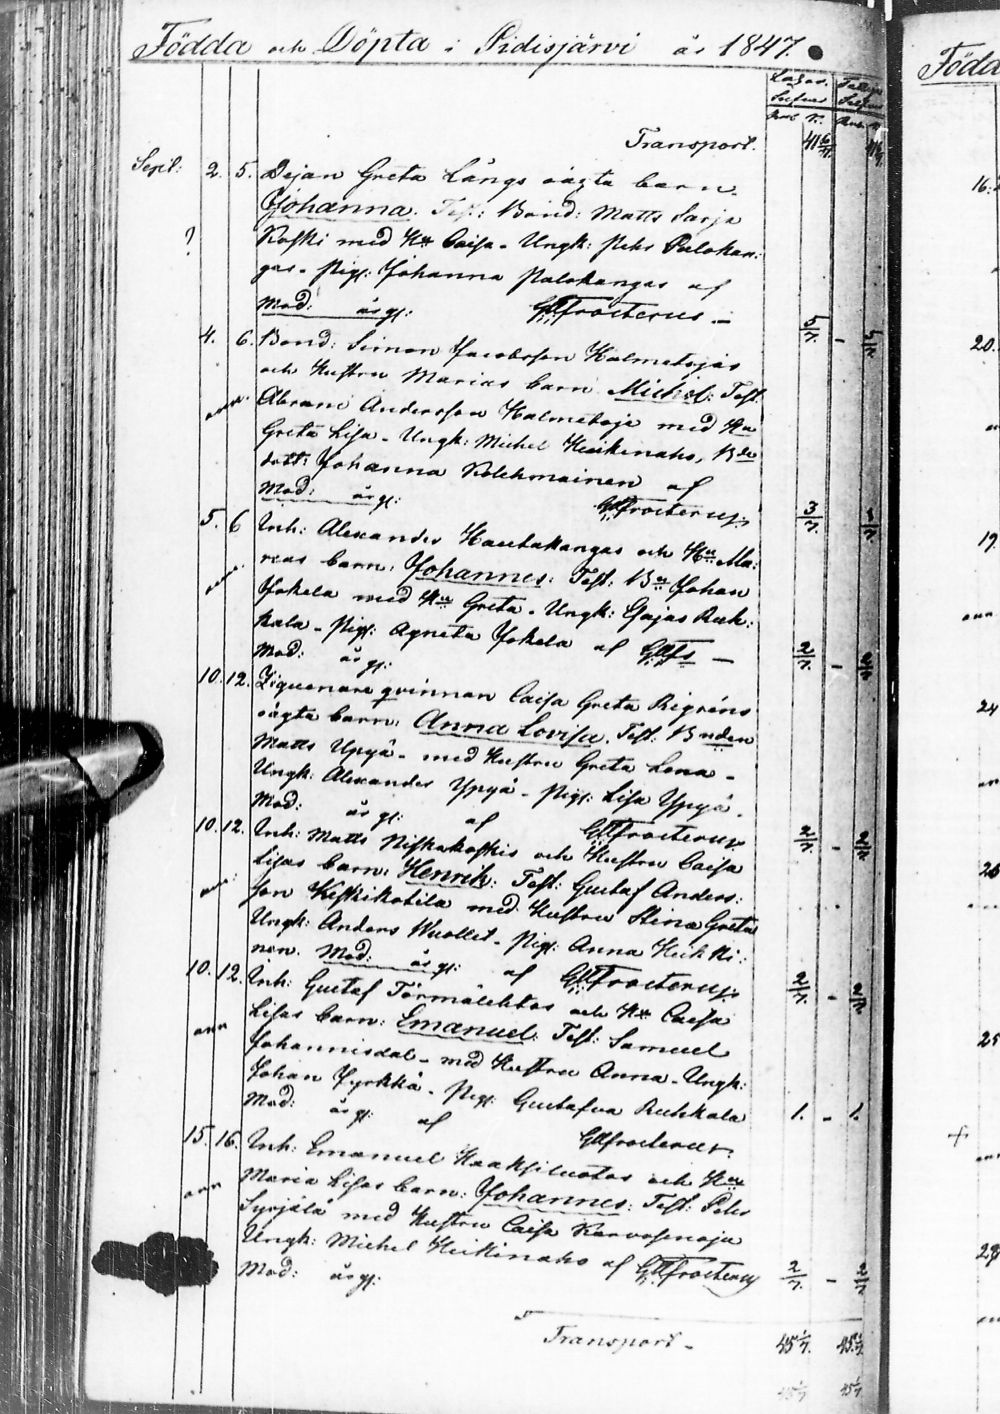 Födda och Döpta i Pidisjärvi år 1847.
Transport.
Sept: 2. 5. Pigan Greta Långs oägta barn
Johanna. Test: Bond: Matts Sarja
? Koski med Hu Caisa. Ungk: Pehr Palokan:
gas. Pig: Johanna Palokangas af
Mod: år gl: GAFrosterus. 5/7. -
4. 6. Bond: Simon Jacobsson Halmetojas
och Hustru Marias barn Michel: Test:
Abram Andersson Halmetoja med Hu
Greta Lisa. Ungk: Michel Heikinaho, Bde
dott: Johanna Kolehmainen af
Mod: år gl: GAFrosterus. 3/7.
5. 6 Inh: Alexander Hautakangas och Hu Ma:
rias barn: Johannes: Test: Bn Johan
Jokela med Hu Greta. Ungk: Esajas Ruh:
kala. Pig: Agneta Jokela af GAFs
Mod: år gl: 2/7. -
10. 12. Ziguenare qvinnan Caisa Greta Regréns
oägta barn: Anna Lovisa. Test: Bnden
Matts Ypyä. med Hustru Greta Lena.
Ungk: Alexander Ypyä. Pig: Lisa Ypyä.
Mod: år gl: af GAFrosterus 2/7. - 2/7
10. 12. Inh: Matts Niskakoskis och Hustru Caisa
Lisas barn: Henrik: Test: Gustaf Anders:
son Keskikotila med Hustru Stina Greta
Ungk: Anders Wuollet. Pig: Anna Heikki:
nen. Mod: år gl: af GAFrosterus. 2/7. - 2/7
10. 12. Inh: Gustaf Törmälehtos och Hu Caisa
Lisas barn: Emanuel: Test: Samuel
Johannisdal. med Hustru Anna. Ungk:
Johan Jyrkkä. Pig: Gustafva Ruhkala
Mod: år gl: af GAFrosterus. 1. - 1.
15. 16. Inh: Emanuel Haaksiluotos och Hu
Maria Lisas barn: Johannes: Test: Pehr
Syrjälä med Hustru Caisa Karvosenoja
Ungk: Michel Heikinaho af GAFrosterus
Mod: år gl: 2/7. - 2/7
Transport. 45 1/7. 45 1/7
Född
16.
20.
19.
24
25
29